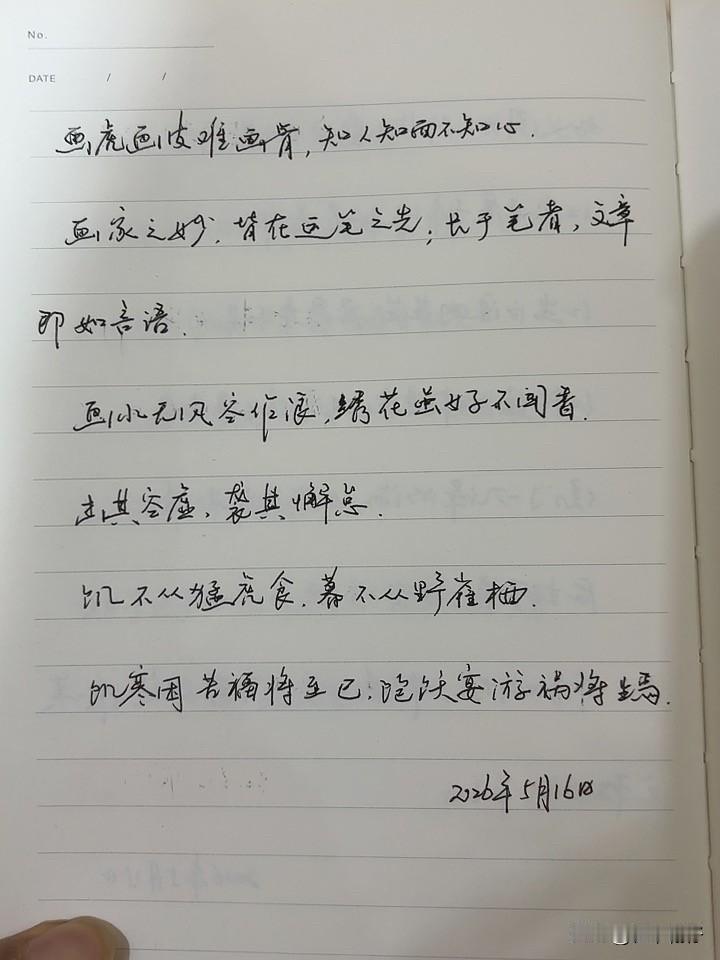 No.
DATE / /
画虎画皮难画骨,知人知面不知心.
画家之妙,皆在运笔之先;长于笔者,文章
即如言语.
画水无风空作浪,绣花虽好不闻香.
击其空虚,袭其懈怠.
饥不从猛虎食,暮不从野雀栖.
饥寒困苦福将至已;饱饫宴游祸将生焉.
2026年5月16日